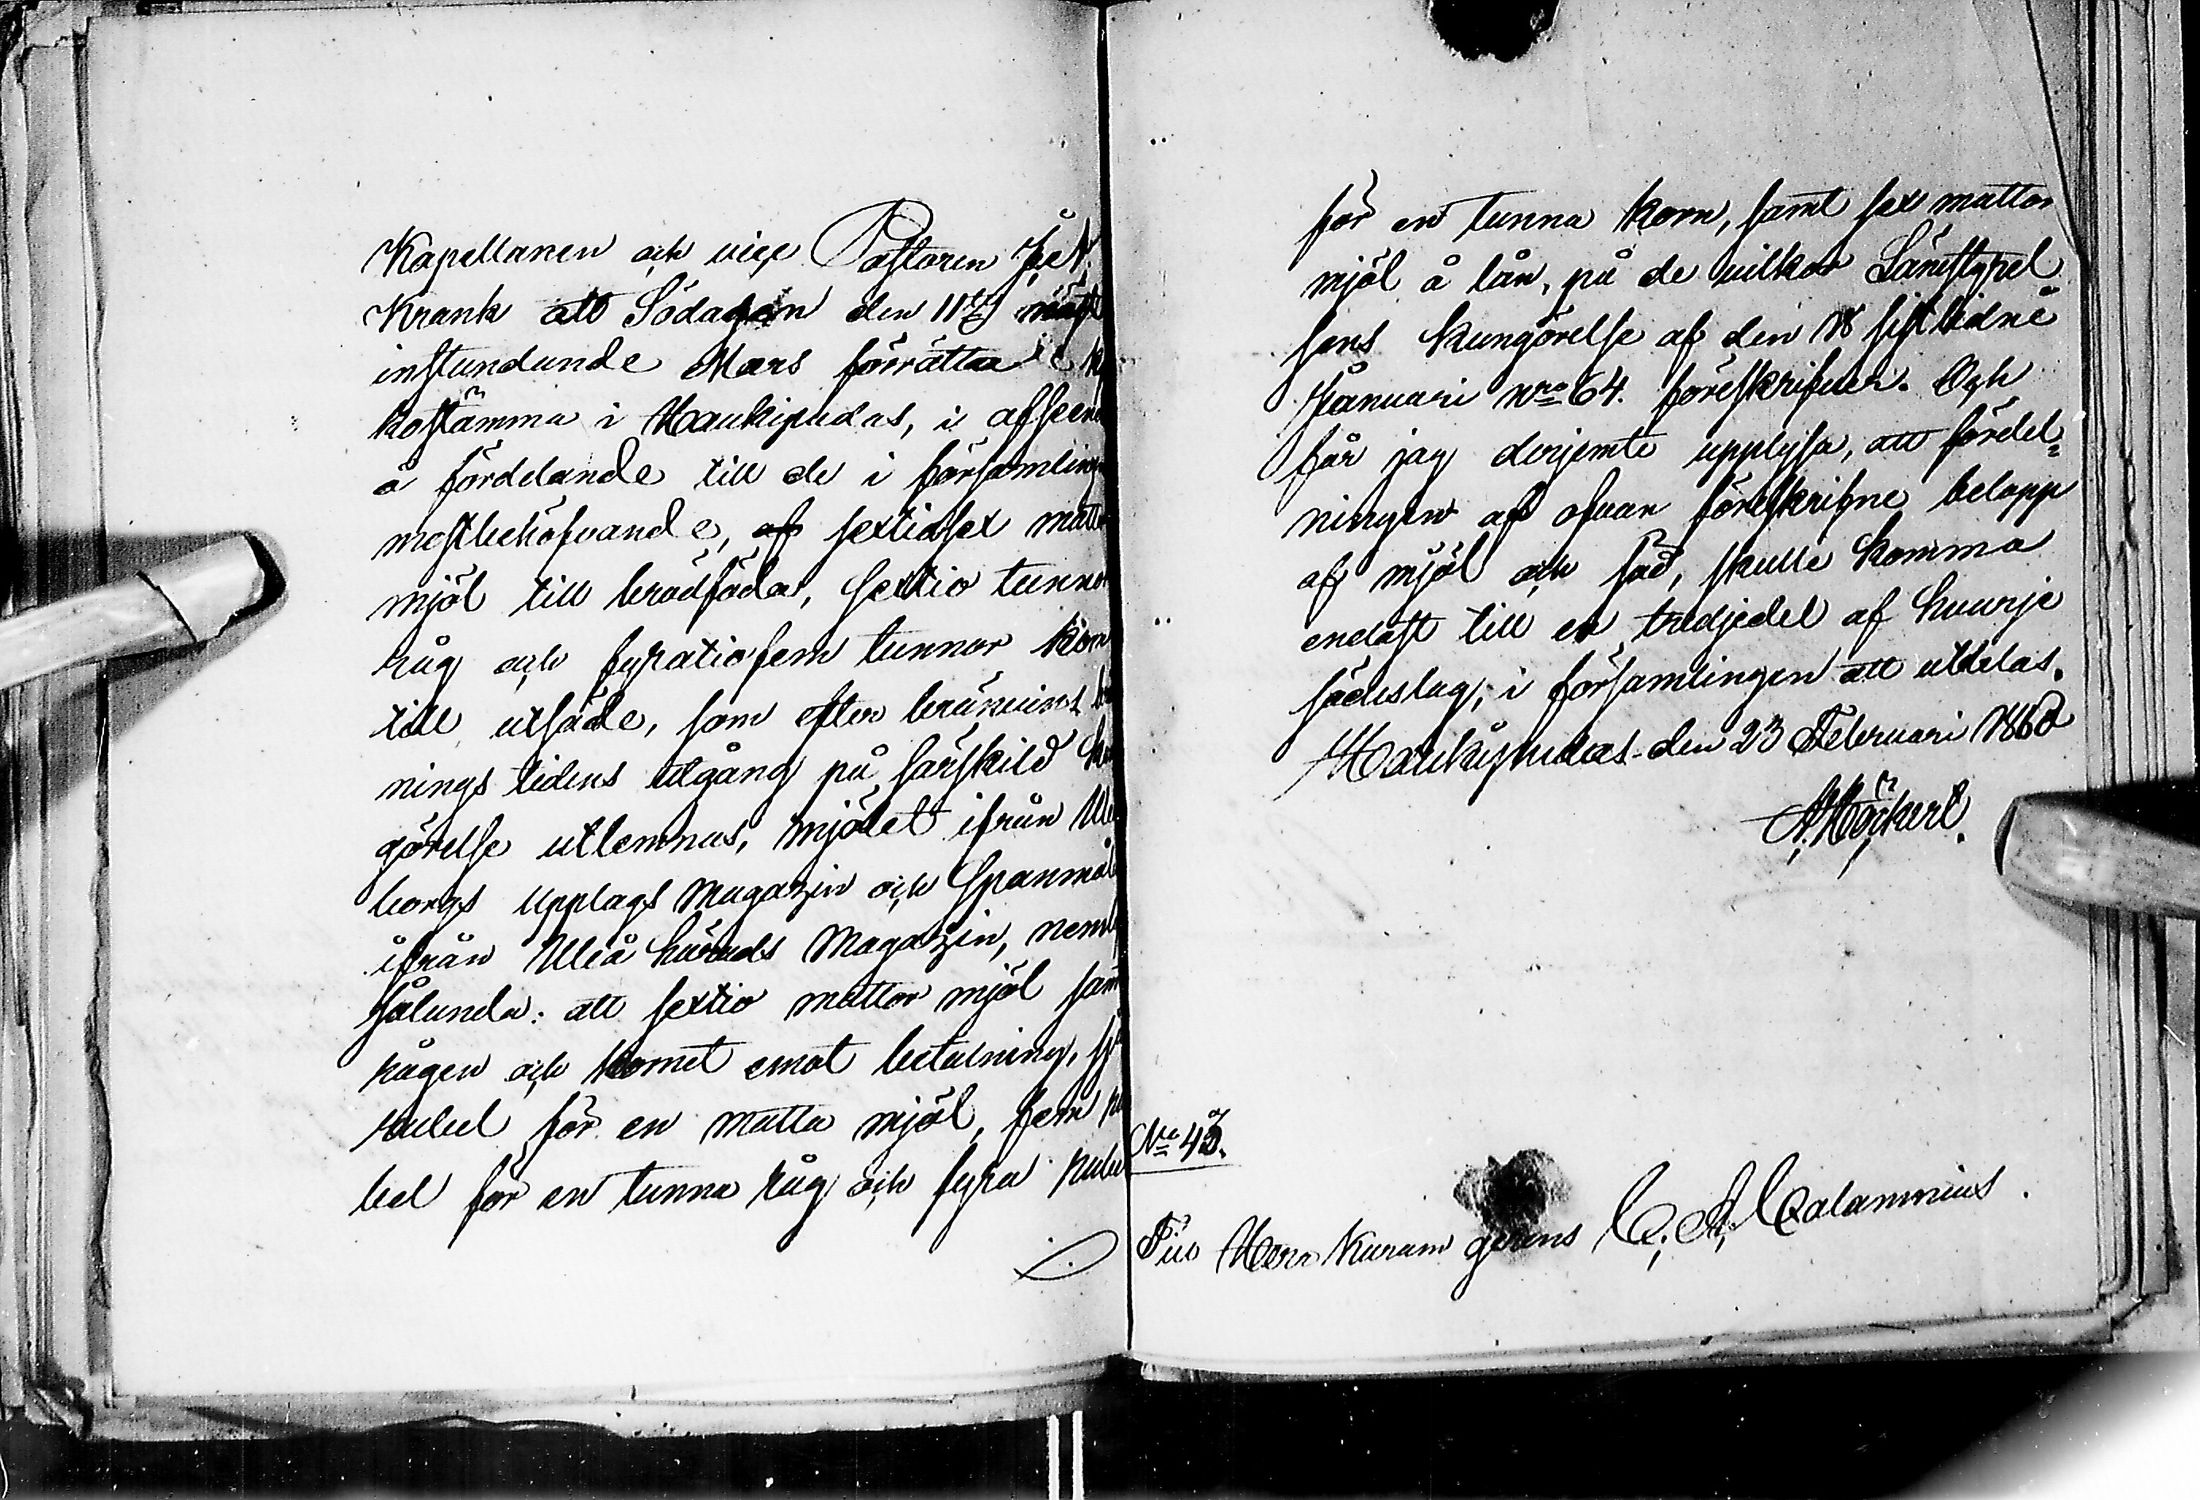 Kapellanen och vice Pastoren
Krank att Södagen den 11te näst
instundande Mars förrätta
kostämma i Haukipudas, i afseen
å fördelande till de i församling
mestbehöfvande, af sextiosex matto
mjöl till brödföda, Sextio tunno
råg och fyratiofem tunnor korn
till utsäde, som efter
nings tidens utgång på särskild
görelse utlemnas, mjölet ifrån Ule
borgs Upplags Magazin och Spanmål
ifrån Uleå härads Magazin, neml
sålunda: att sextio mattor mjöl sam
rågen och kornet emot betalning,
rubel för en matta mjöl, fem ru
bel för en tunna råg och fyra rube
för en tunna korn, samt sex mattor
mjöl å lån, på de vilkor Länestyrel
sens kungörelse af den 18 sistlidne
Januari No 64. föreskrifver. Och
får jag derjemte upplysa, att fördel=
ningen af ofvan föreskrifne belopp
af mjöl och säd, skulle komma
endast till en tredjedel af hvarje
sädeslag, i församlingen att utdelas.
Haukipudas den 23 Februari 1860
A. Höckert.
No 43.
Till Herr Kuram gerens C. A. Calamnius.